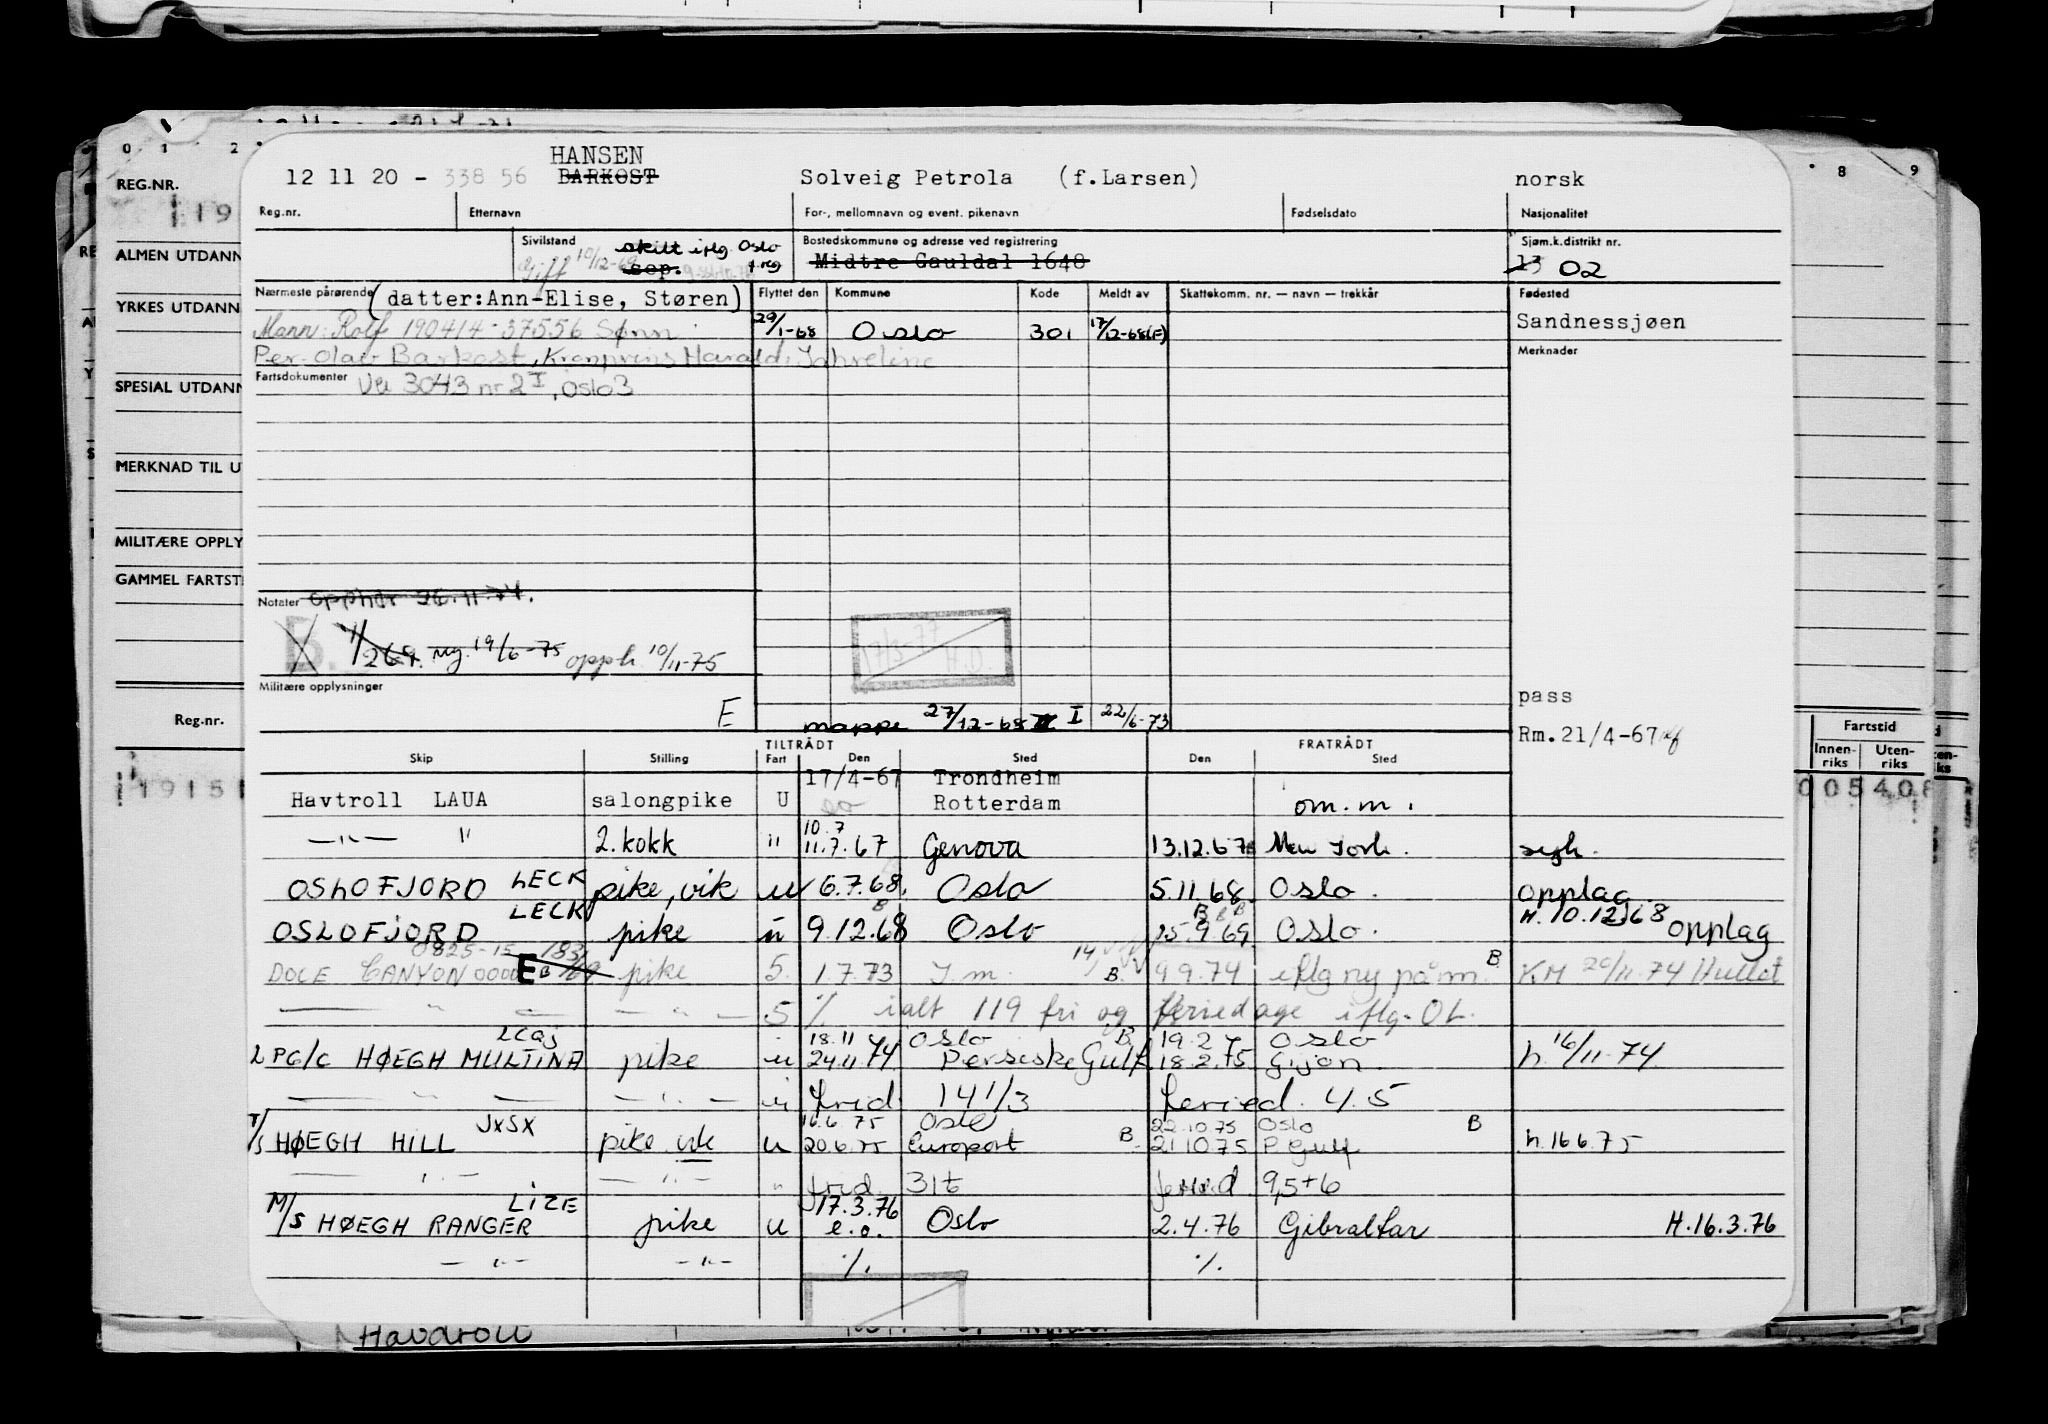 0 1 2
REG.NR.
19
ALMEN UTDANN
YRKES UTDANN
SPESIAL UTDANN
MERKNAD TIL U
MILITÆRE OPPLY
GAMMEL FARTST
Reg.nr.
19151
HANSEN
12 11 20 - 338 56 BARKOST Solveig Petrola (f.Larsen) norsk
Reg.nr. Etternavn For-, mellomnavn og event. pikenavn Fødselsdato Nasjonalitet
Sivilstand skilt iflg. Oslo f.reg Bostedskommune og adresse ved registrering Sjøm.k.distrikt nr.
Gift 10/12-69 sep. Midtre Gauldal 1648 13 02
Nærmeste pårørende (datter:Ann-Elise, Støren) Flyttet den Kommune Kode Meldt av Skattekomm. nr. — navn — trekkår Fødested
Mann: Rolf 190414-37556 Sønn 29/1-68 Oslo 301 17/12-68(E) Sandnessjøen
Per-Olav Barkost, Kronprins Harald, Jahreline Merknader
Fartsdokumenter Ve 3043 nr 2 I, Oslo 3
Notater opphør 26.11.74.
B. 1/269. ny. 19/6-75 opph. 10/11-75
17/3-77 H.D.
Militære opplysninger
pass
E mappe 27/12-68 I 22/6-73
Rm.21/4-67
TILTRÅDT FRATRÅDT
Skip Stilling Fart Den Sted Den Sted
17/4-67 Trondheim
Havtroll LAUA salongpike U Rotterdam om.m.
—"— " 2.kokk " 10.7 11.7.67 Genova 13.12.67 New York.
OSLOFJORD LECK pike, vik u 6.7.68. Oslo 5.11.68. Oslo. opplag
OSLOFJORD LECK pike u 9.12.68 B Oslo 15.9.69 B B B Oslo. H.10.12.68 opplag
0825-15
DOLE CANYON 0000 E B pike 5. 1.7.73 I.m. B. 9.9.74 iflg ny påm. B. KM 20/11.74 Hullet
— " — — " — 5 % ialt 119 fri og feriedage iflg. OL.
LCQJ 18.11 Oslo B. 19.2.7 Oslo
LPG/C HØEGH MULTINA pike u 24.11.74 Persiske Gulf 18.2.75 Gijon. h. 16/11-74.
— " — — " — " frid 14 1/3 feried. 4.5
JXSX 16.6.75 Oslo 22.10.75 Oslo B
T/S HØEGH HILL pike vik u 20.6.75 Europort B. 21.10.75 P. Gulf h.16.6.75
— " — — " — " frid. 31t feried 9,5+6
LIZE 17.3.76
M/S HØEGH RANGER pike u e.o. Oslo 2.4.76 Gibraltar H.16.3.76
— " — — " — %. %.
Havdroll
8 9
Fartstid
Innen-riks Uten-riks
005408